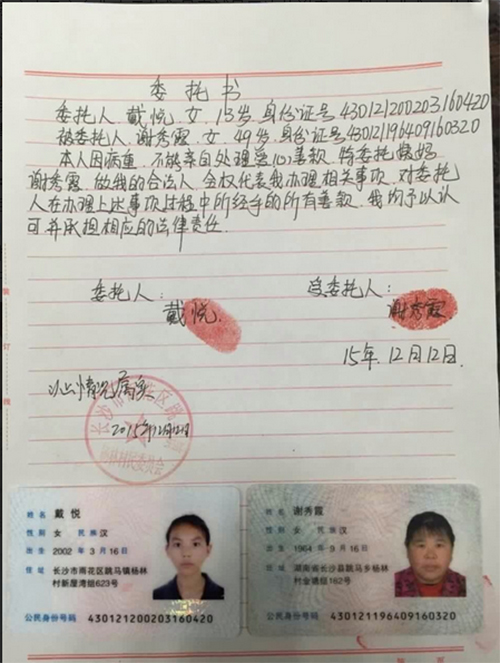 委托书
委托人.戴悦,女,13岁.身份证号430121200203160420
被委托人.谢秀霞.女.49岁.身份证号430121196409160320
本人因病重.不能亲自处理善款.特委托
谢秀霞.做我的合法人.全权代表我办理相关事项.对委托
人在办理上述事项过程中所经手的所有善款.我均予以认
可并承担相应的法律责任.
委托人: 受委托人:
戴悦 谢秀霞
15年.12月12日.
以上情况属实
长沙市 花区跳 村民委员会
2015年12月12日
姓名 戴悦
性别 女 民族 汉
出生 2002 年 3 月 16 日
住址 长沙市雨花区跳马镇杨林
村新屋湾组623号
公民身份号码 430121200203160420
姓名 谢秀霞
性别 女 民族 汉
出生 1964 年 9 月 16 日
住址 湖南省长沙县跳马乡杨林
村金塘组162号
公民身份号码 430121196409160320